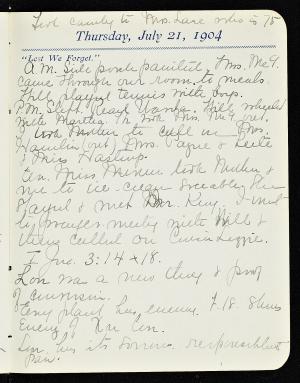 Took candy to Mrs. Lane who is 75
Thursday, July 21, 1904
"Lest We Forget."
A.M. Side porch painted, Mrs. McG.
came through our room to meals.
Will played tennis with boys.
P.M. Slept. Heard Wanka. Will wheeled
with Martha. M. took Mrs. McG. out.
took Mother to call on Mrs.
Hamlin (out) Mrs. Payne &
& Miss Hastings.
Eve. Miss took Mother &
me to ice-cream Sociable
& met Dr. King. I went
to prayer meeting with Will &
they called on Cousin Lizzie.
I Jno. 3:14 & 18.
Love was a new thing & proof
of conversion.
Every plant has enemy. V. 18. Shows
Enemy of
Sin has its sorrows responsibilities
pain.